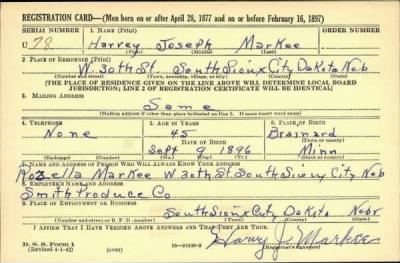 REGISTRATION CARD—(Men born on or after April 28, 1877 and on or before February 16, 1897)
SERIAL NUMBER 1. NAME (Print) ORDER NUMBER
U 78 Harvey Joseph Markee
(First) (Middle) (Last)
2. PLACE OF RESIDENCE (Print)
W. 30th St. South Sioux City Dakota Neb
(Number and street) (Town, township, village, or city) (County) (State)
[THE PLACE OF RESIDENCE GIVEN ON THE LINE ABOVE WILL DETERMINE LOCAL BOARD
JURISDICTION; LINE 2 OF REGISTRATION CERTIFICATE WILL BE IDENTICAL]
3. MAILING ADDRESS
Same
[Mailing address if other than place indicated on line 2. If same insert word same]
4. TELEPHONE 5. AGE IN YEARS 6. PLACE OF BIRTH
None 45 Brainard
DATE OF BIRTH (Town or county)
Sept 9 1896 Minn
(Exchange) (Number) (Mo.) (Day) (Yr.) (State or country)
7. NAME AND ADDRESS OF PERSON WHO WILL ALWAYS KNOW YOUR ADDRESS
Rozella Markee W 30th St. South Sioux City Neb
8. EMPLOYER'S NAME AND ADDRESS
Smith Produce Co
9. PLACE OF EMPLOYMENT OR BUSINESS
South Sioux City Dakota Nebr.
(Number and street or R. F. D. number) (Town) (County) (State)
I AFFIRM THAT I HAVE VERIFIED ABOVE ANSWERS AND THAT THEY ARE TRUE.
D. S. S. Form 1
(Revised 4-1-42) (over) 16—21630-2 Harvey J. Markee
(Registrant's signature)